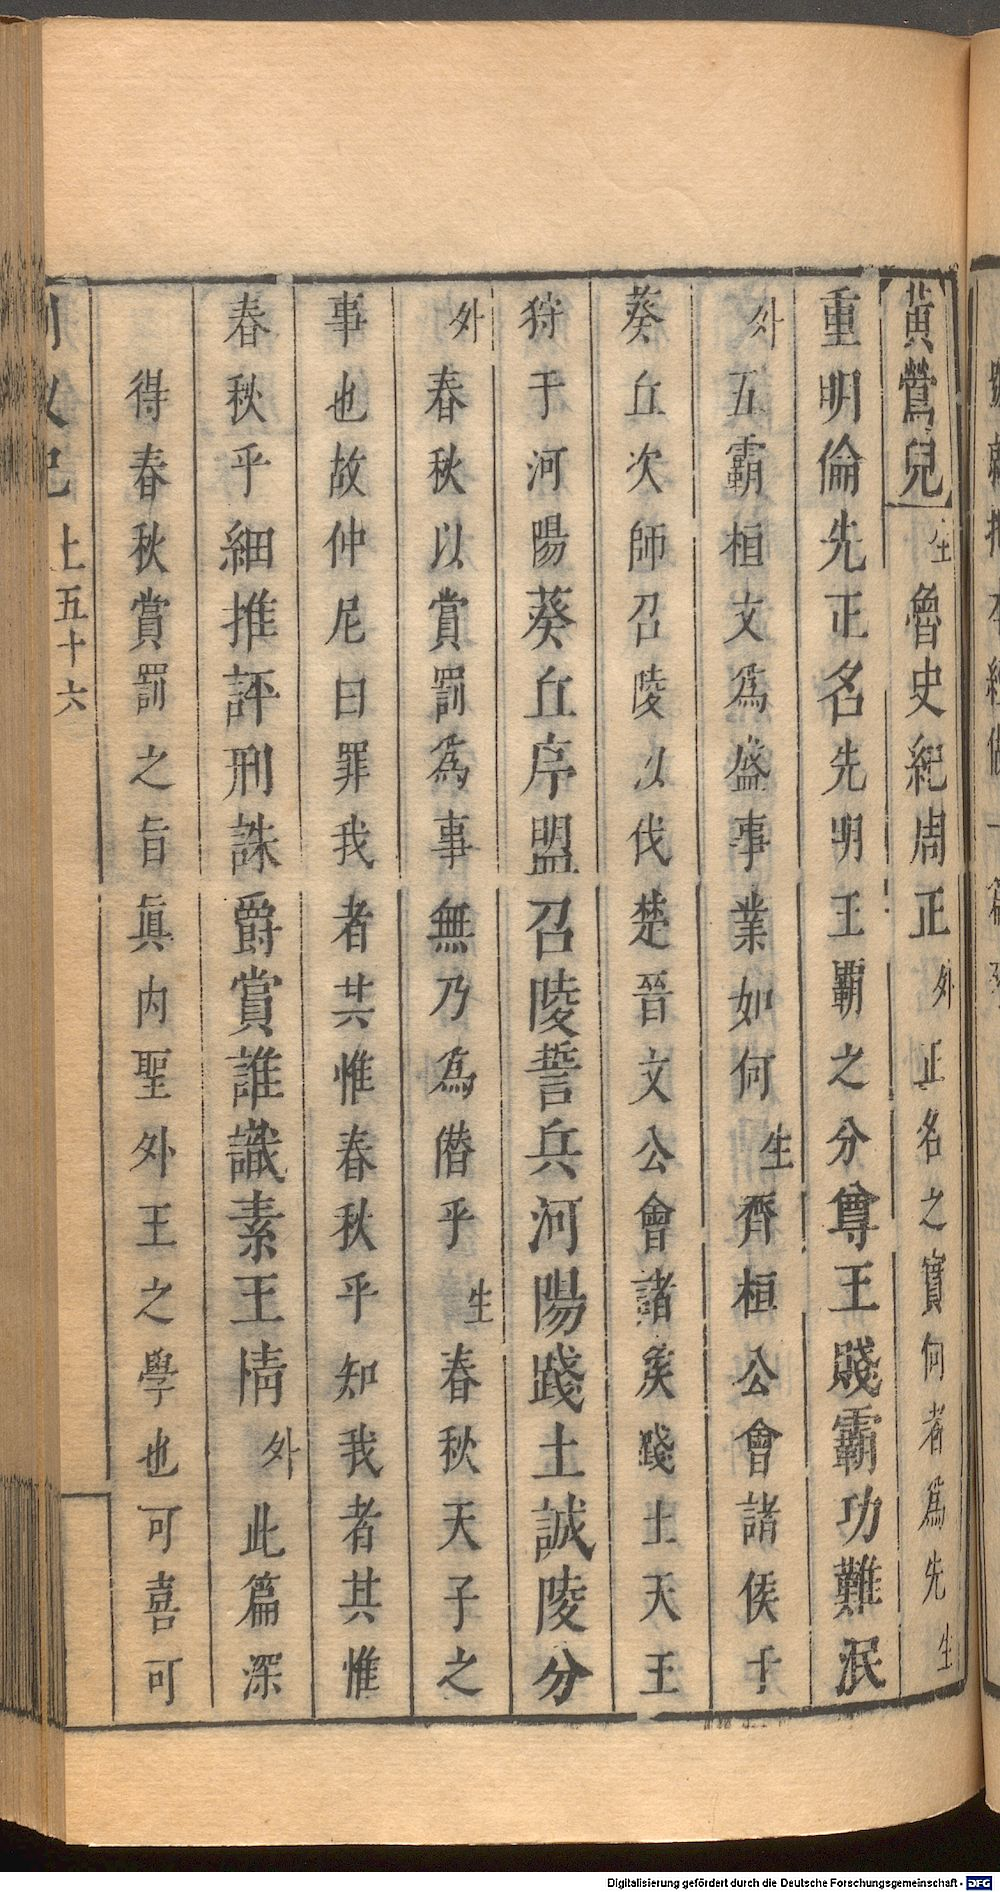 黃鶯兒生魯史紀周正外正名之實何者爲先生
重明倫先正名先明王覇之分尊王賤霸功難泯
外五霸桓文爲盛事業如何生齊桓公會諸侯于
葵丘次師召陵以伐楚晉文公會諸矦踐土天王
狩于河陽葵丘序盟召陵誓兵河陽踐土誠陵分
外春秋以賞罰爲事無乃爲僭乎生春秋天子之
事也故仲尼曰罪我者其惟春秋乎知我者其惟
春秋乎細推評刑誅爵賞誰識素王情外此篇深
得春秋賞罰之旨眞内聖外王之學也可喜可
上五十六
Digitalisierung gefördert durch die Deutsche Forschungsgemeinschaft - DFG